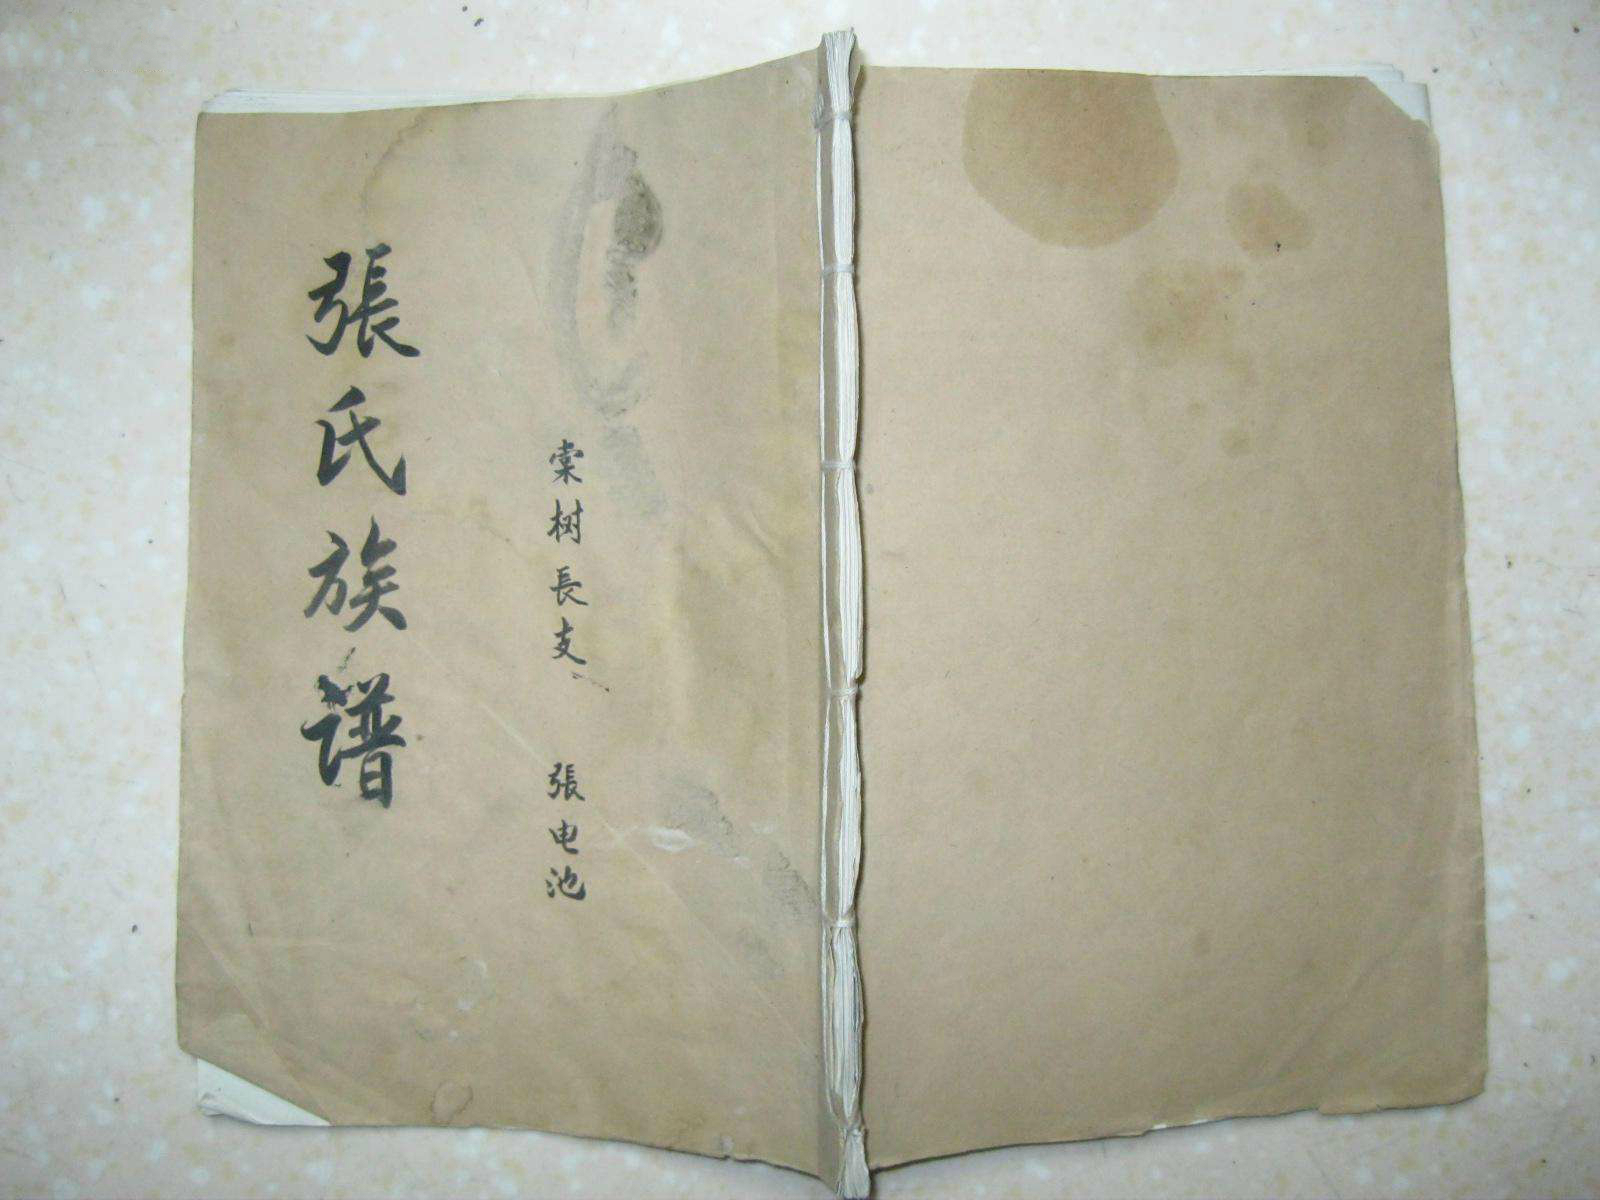 張氏族谱
棠树長支 張电池